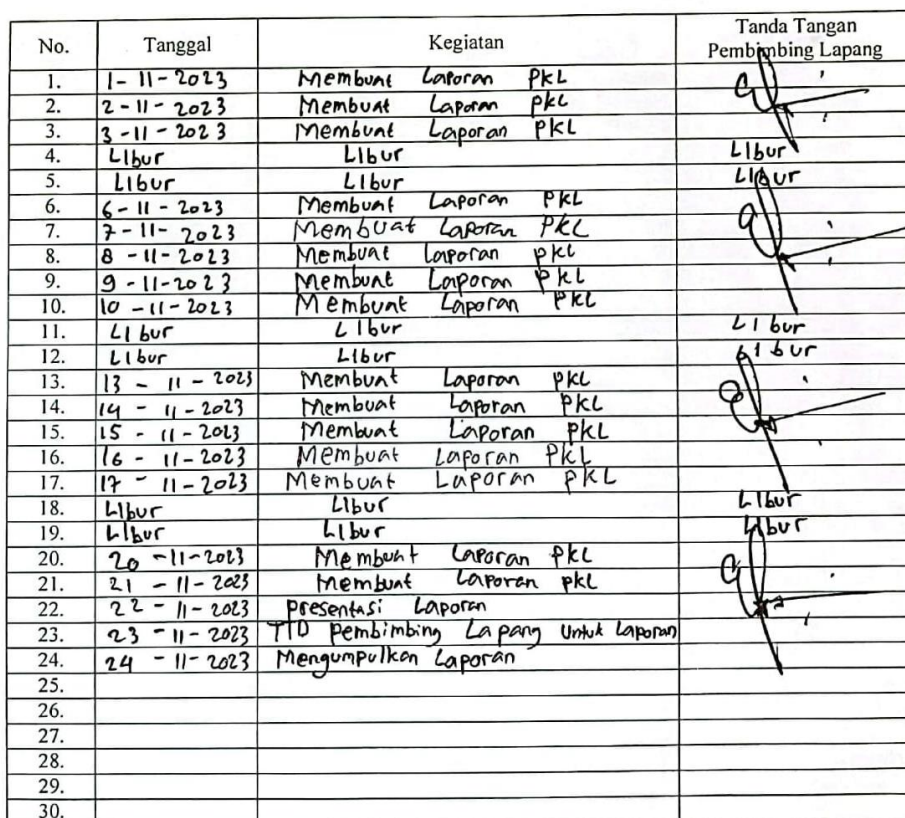 No. Tanggal Kegiatan Tanda Tangan Pembimbing Lapang
1. 1-11-2023 Membuat Laporan PKL
2. 2-11-2023 Membuat Laporan PKL
3. 3-11-2023 Membuat Laporan PKL
4. Libur Libur Libur
5. Libur Libur Libur
6. 6-11-2023 Membuat Laporan PKL
7. 7-11-2023 Membuat Laporan PKL
8. 8-11-2023 Membuat Laporan PKL
9. 9-11-2023 Membuat Laporan PKL
10. 10-11-2023 Membuat Laporan PKL
11. Libur Libur Libur
12. Libur Libur Libur
13. 13-11-2023 Membuat Laporan PKL
14. 14-11-2023 Membuat Laporan PKL
15. 15-11-2023 Membuat Laporan PKL
16. 16-11-2023 Membuat Laporan PKL
17. 17-11-2023 Membuat Laporan PKL
18. Libur Libur Libur
19. Libur Libur Libur
20. 20-11-2023 Membuat Laporan PKL
21. 21-11-2023 Membuat Laporan PKL
22. 22-11-2023 Presentasi Laporan
23. 23-11-2023 TTD Pembimbing Lapang Untuk Laporan
24. 24-11-2023 Mengumpulkan Laporan
25.
26.
27.
28.
29.
30.